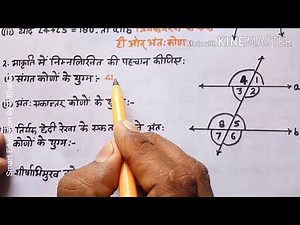 (ii) यदि ∠4+∠5 = 180°, तो
ही ओर अंतः कोण
Made With KINEMASTER
2. आकृति में निम्नलिखित की पहचान कीजिए:
(i) संगत कोणों के युग्म :- ∠1
(ii) अंतः एकान्तर कोणों के युग्म :-
(iii) तिर्यक छेदी रेखा के एक अंतः
कोणों के युग्म:-
शीर्षाभिमुख
4 1
3 2
8 5
7 6
Smart Education